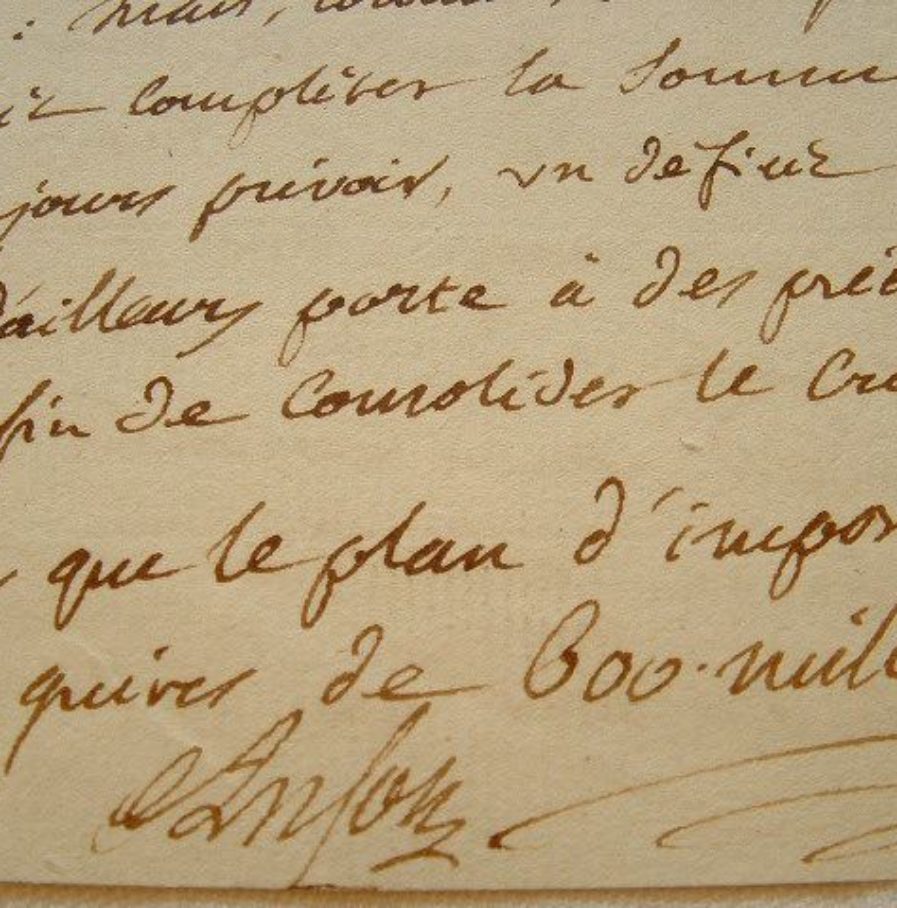 : mais,
it compléter la somme
jours prévoir, un deficit
d'ailleurs porte à des pré
fin de consolider le cré
que le plan d'impos
guerres de 600. mill
Anson